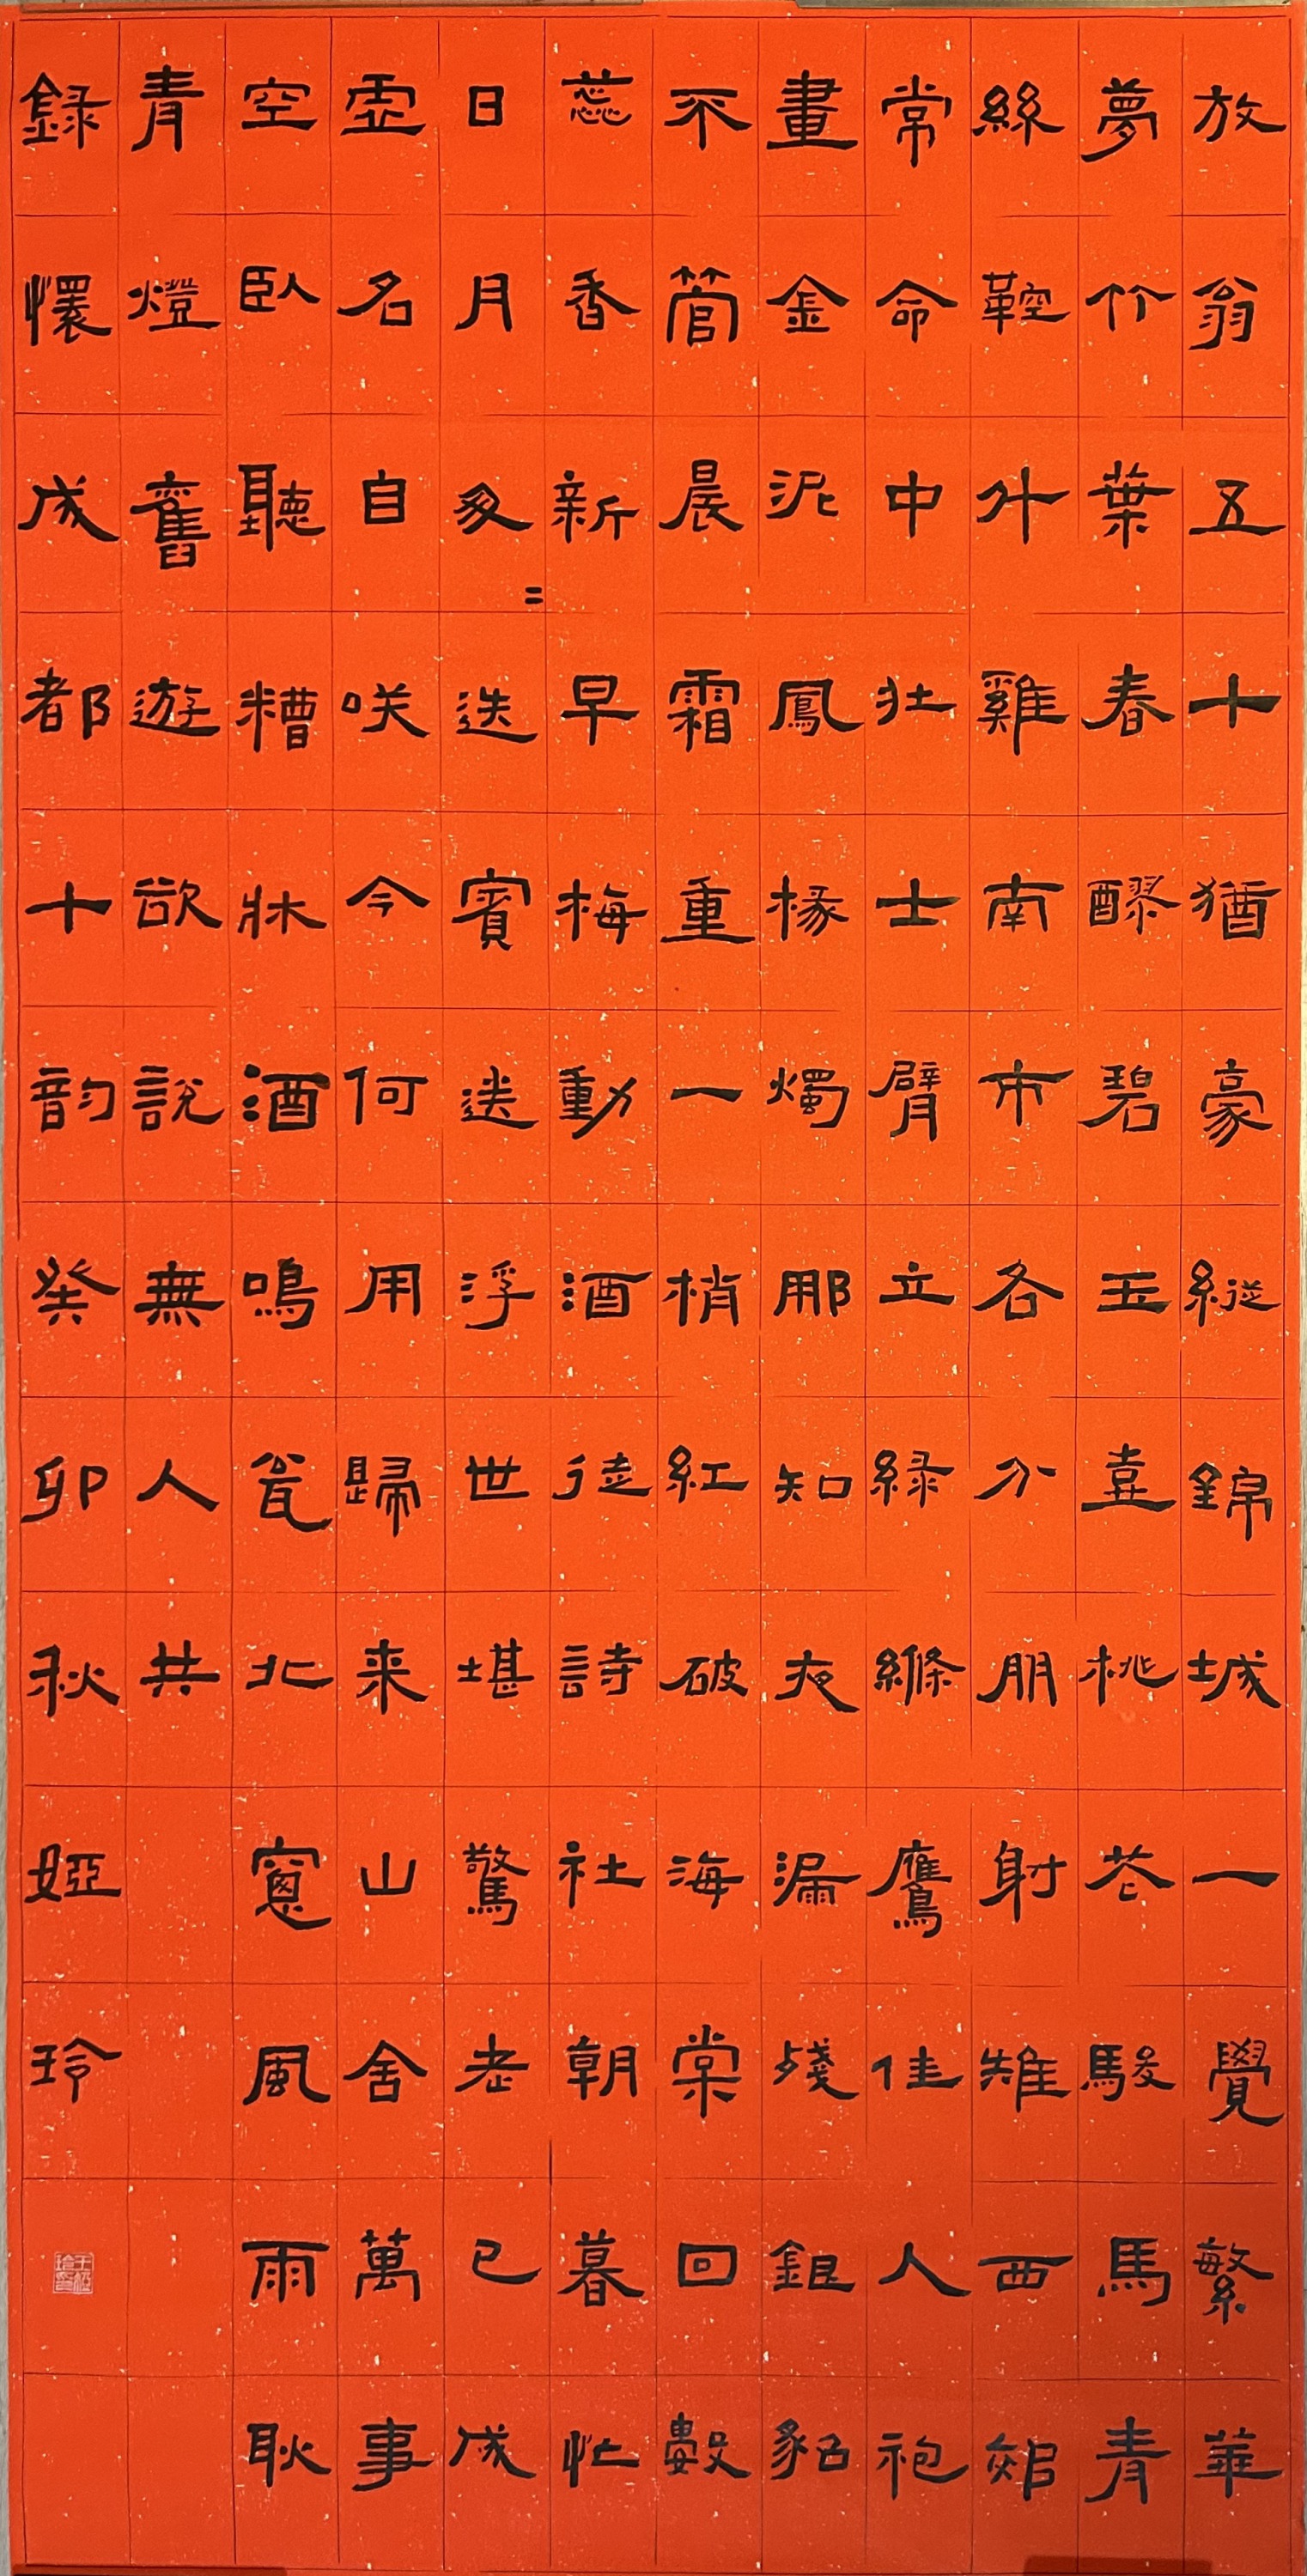 放翁五十猶豪縱錦城一覺繁華
夢竹葉春醪碧玉壺桃花駿馬青
絲鞚斗雞南市各分朋射雉西郊
常命中壯士臂立綠絛鷹佳人袍
畫金泥鳳椽燭那知夜漏殘銀貂
不管晨霜重一梢紅破海棠回數
蕊香新早梅動酒徒詩社朝暮忙
日月匆〻迭賓送浮世堪驚老已成
虛名自咲今何用歸来山舍萬事
空臥聽糟牀酒鳴瓮北窻風雨耿
青燈舊遊欲說無人共
録懷成都十韵癸卯秋婭玲
王婭玲印